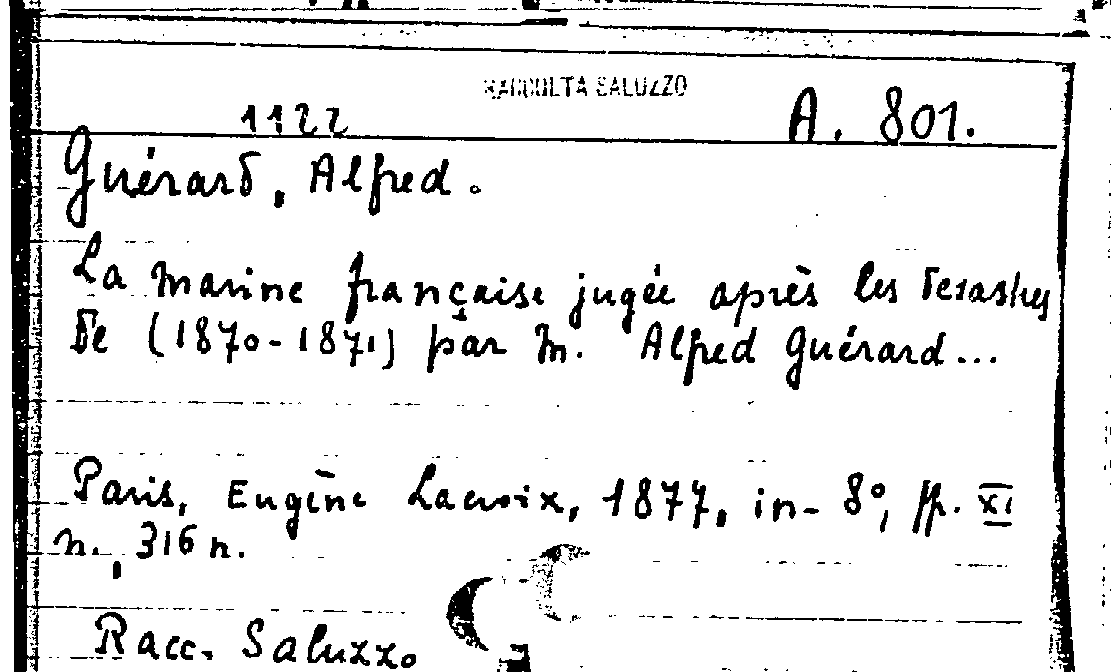 RACCOLTA SALUZZO
1122 A. 801.
Guérard, Alfred.
La marine française jugée après les desastres
de (1870-1871) par M. Alfred Guérard...
Paris, Eugène Lacroix, 1877, in-8°, pp. XI
n., 316 n.
Racc. Saluzzo